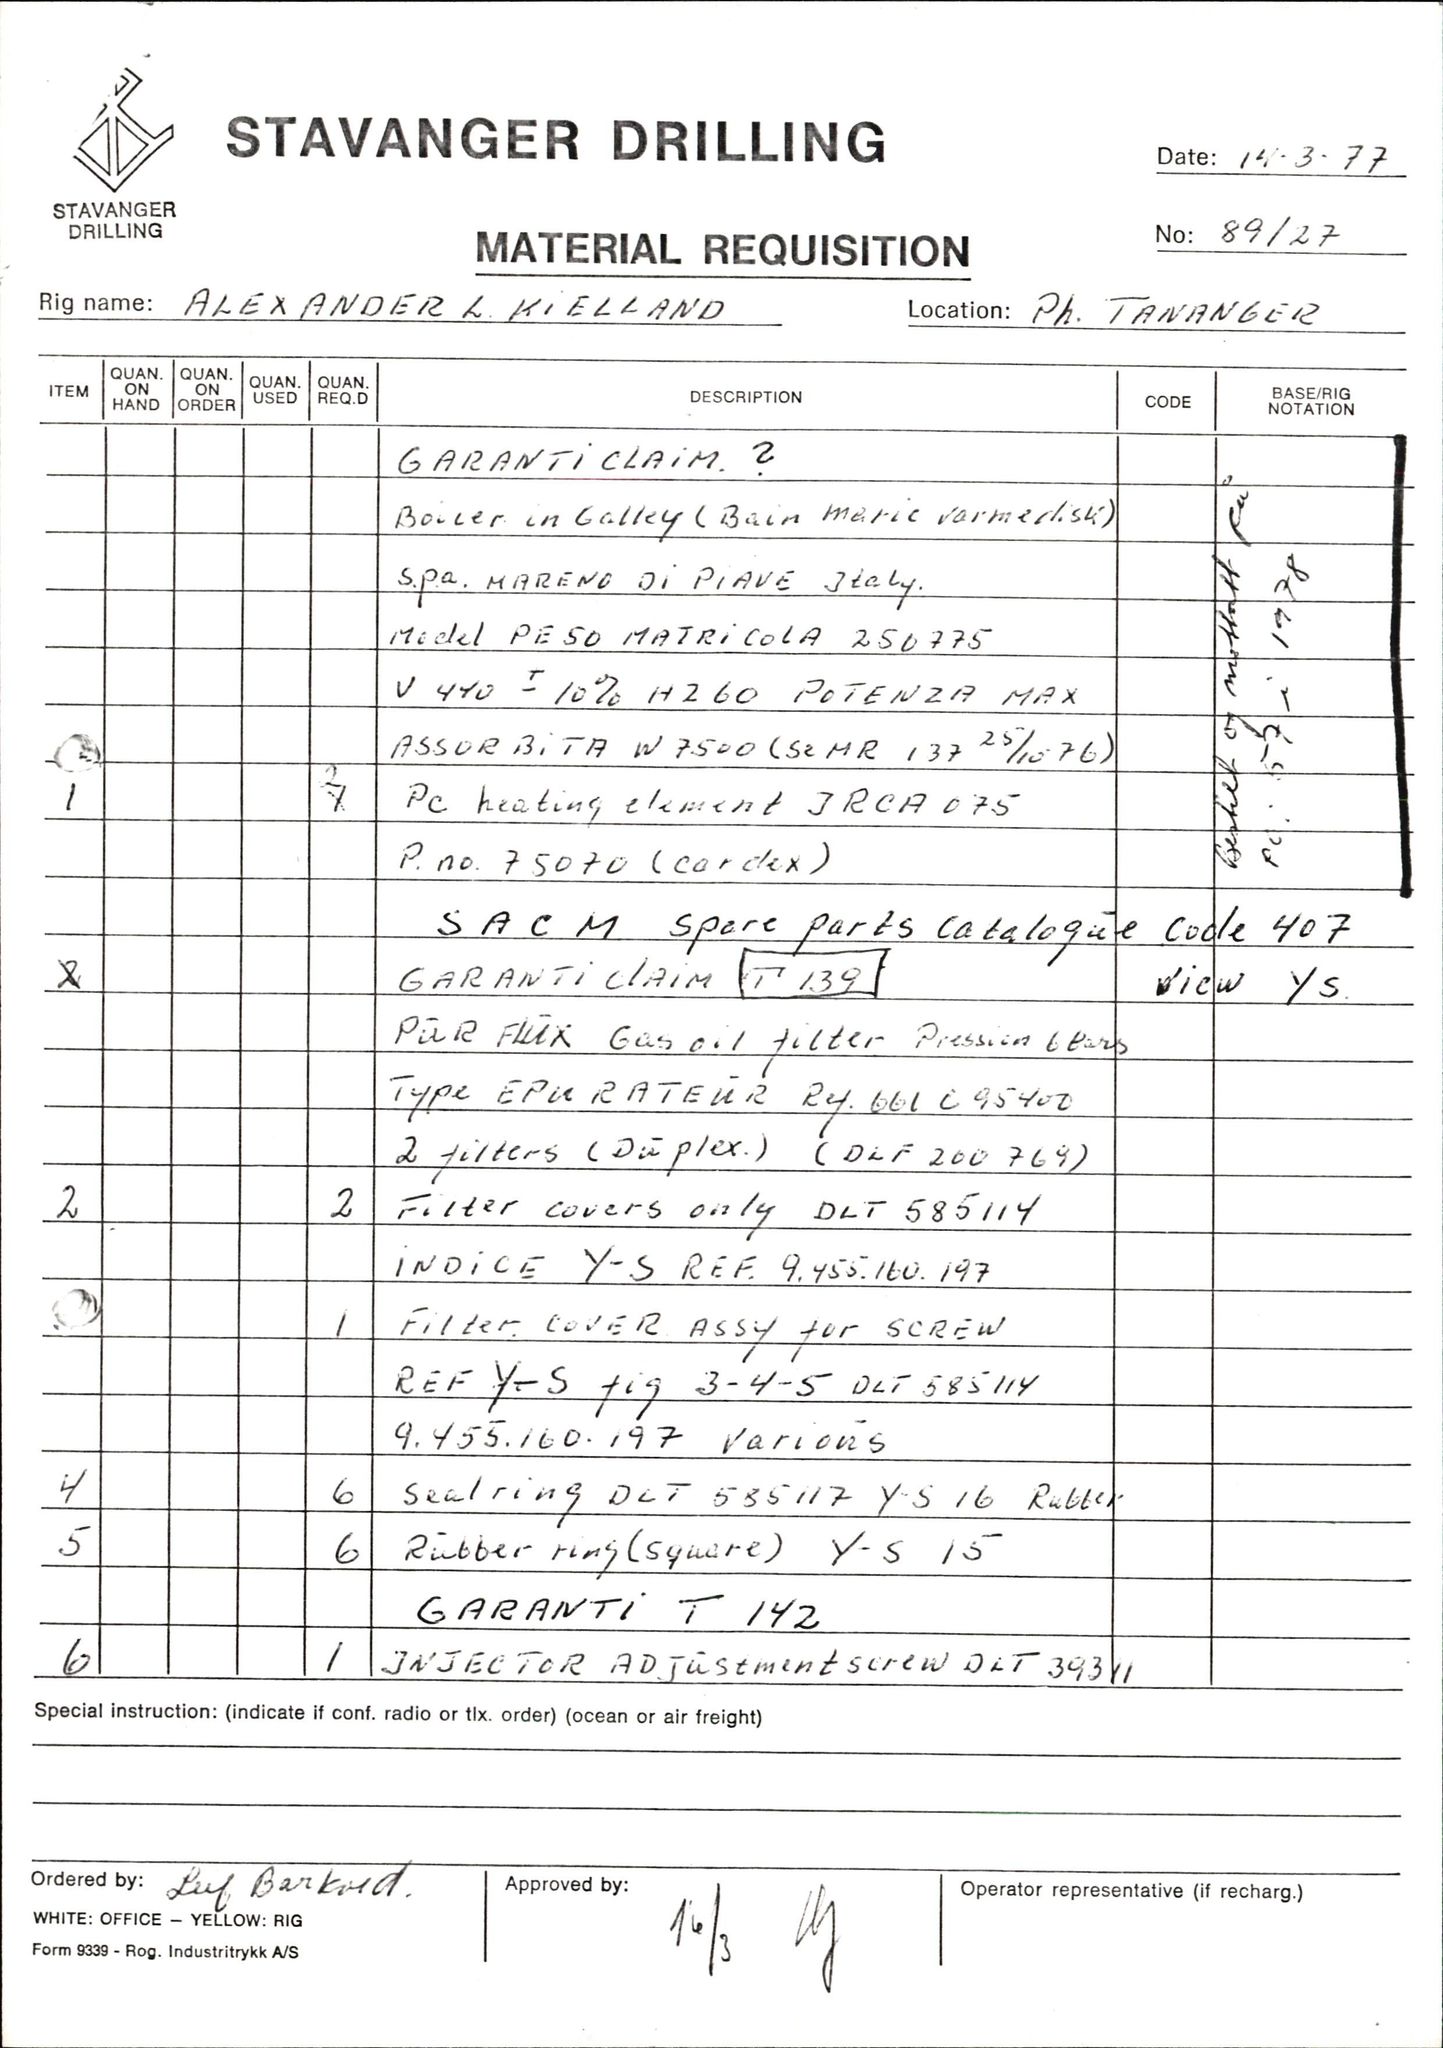 STAVANGER DRILLING
STAVANGER
DRILLING
Date: 14-3-77
No: 89/27
MATERIAL REQUISITION
Rig name: ALEXANDER L. KIELLAND
Location: Ph. TANANGER
ITEM QUAN. ON HAND QUAN. ON ORDER QUAN. USED QUAN. REQ.D DESCRIPTION CODE BASE/RIG NOTATION
GARANTI CLAIM. ?
Boiler in Galley (Bain Marie varmedisk)
S.p.a. MARENO Di PIAVE Italy.
Model PESO MATRICOLA 250775
V 440 ± 10% HZ60 POTENZA MAX
ASSORBITA W 7500 (Se MR 137 25/10 76)
1 2 Pc heating element IRCA 075
P. no. 75070 (cardex)
Bestilt og mottatt på
PO. 55 - i 1978
SACM Spare parts Catalogue Code 407
GARANTI CLAIM T 139 View YS.
PUR FLUX Gas oil filter Pression 6 bars
Type EPURATEUR Ref. 661 C 95400
2 filters (Duplex.) (DLF 200 769)
2 2 Filter covers only DLT 585114
INDICE Y-S REF. 9.455.160.197
1 Filter COVER ASSY for SCREW
REF Y-S fig 3-4-5 DLT 585114
9.455.160.197 Various
4 6 Seal ring DLT 585117 Y-S 16 Rubber
5 6 Rubber ring (square) Y-S 15
GARANTI T 142
6 1 INJECTOR ADjustment screw DLT 39311
Special instruction: (indicate if conf. radio or tlx. order) (ocean or air freight)
Ordered by: Leif Barkved.
Approved by: 16/3
Operator representative (if recharg.)
WHITE: OFFICE – YELLOW: RIG
Form 9339 - Rog. Industritrykk A/S